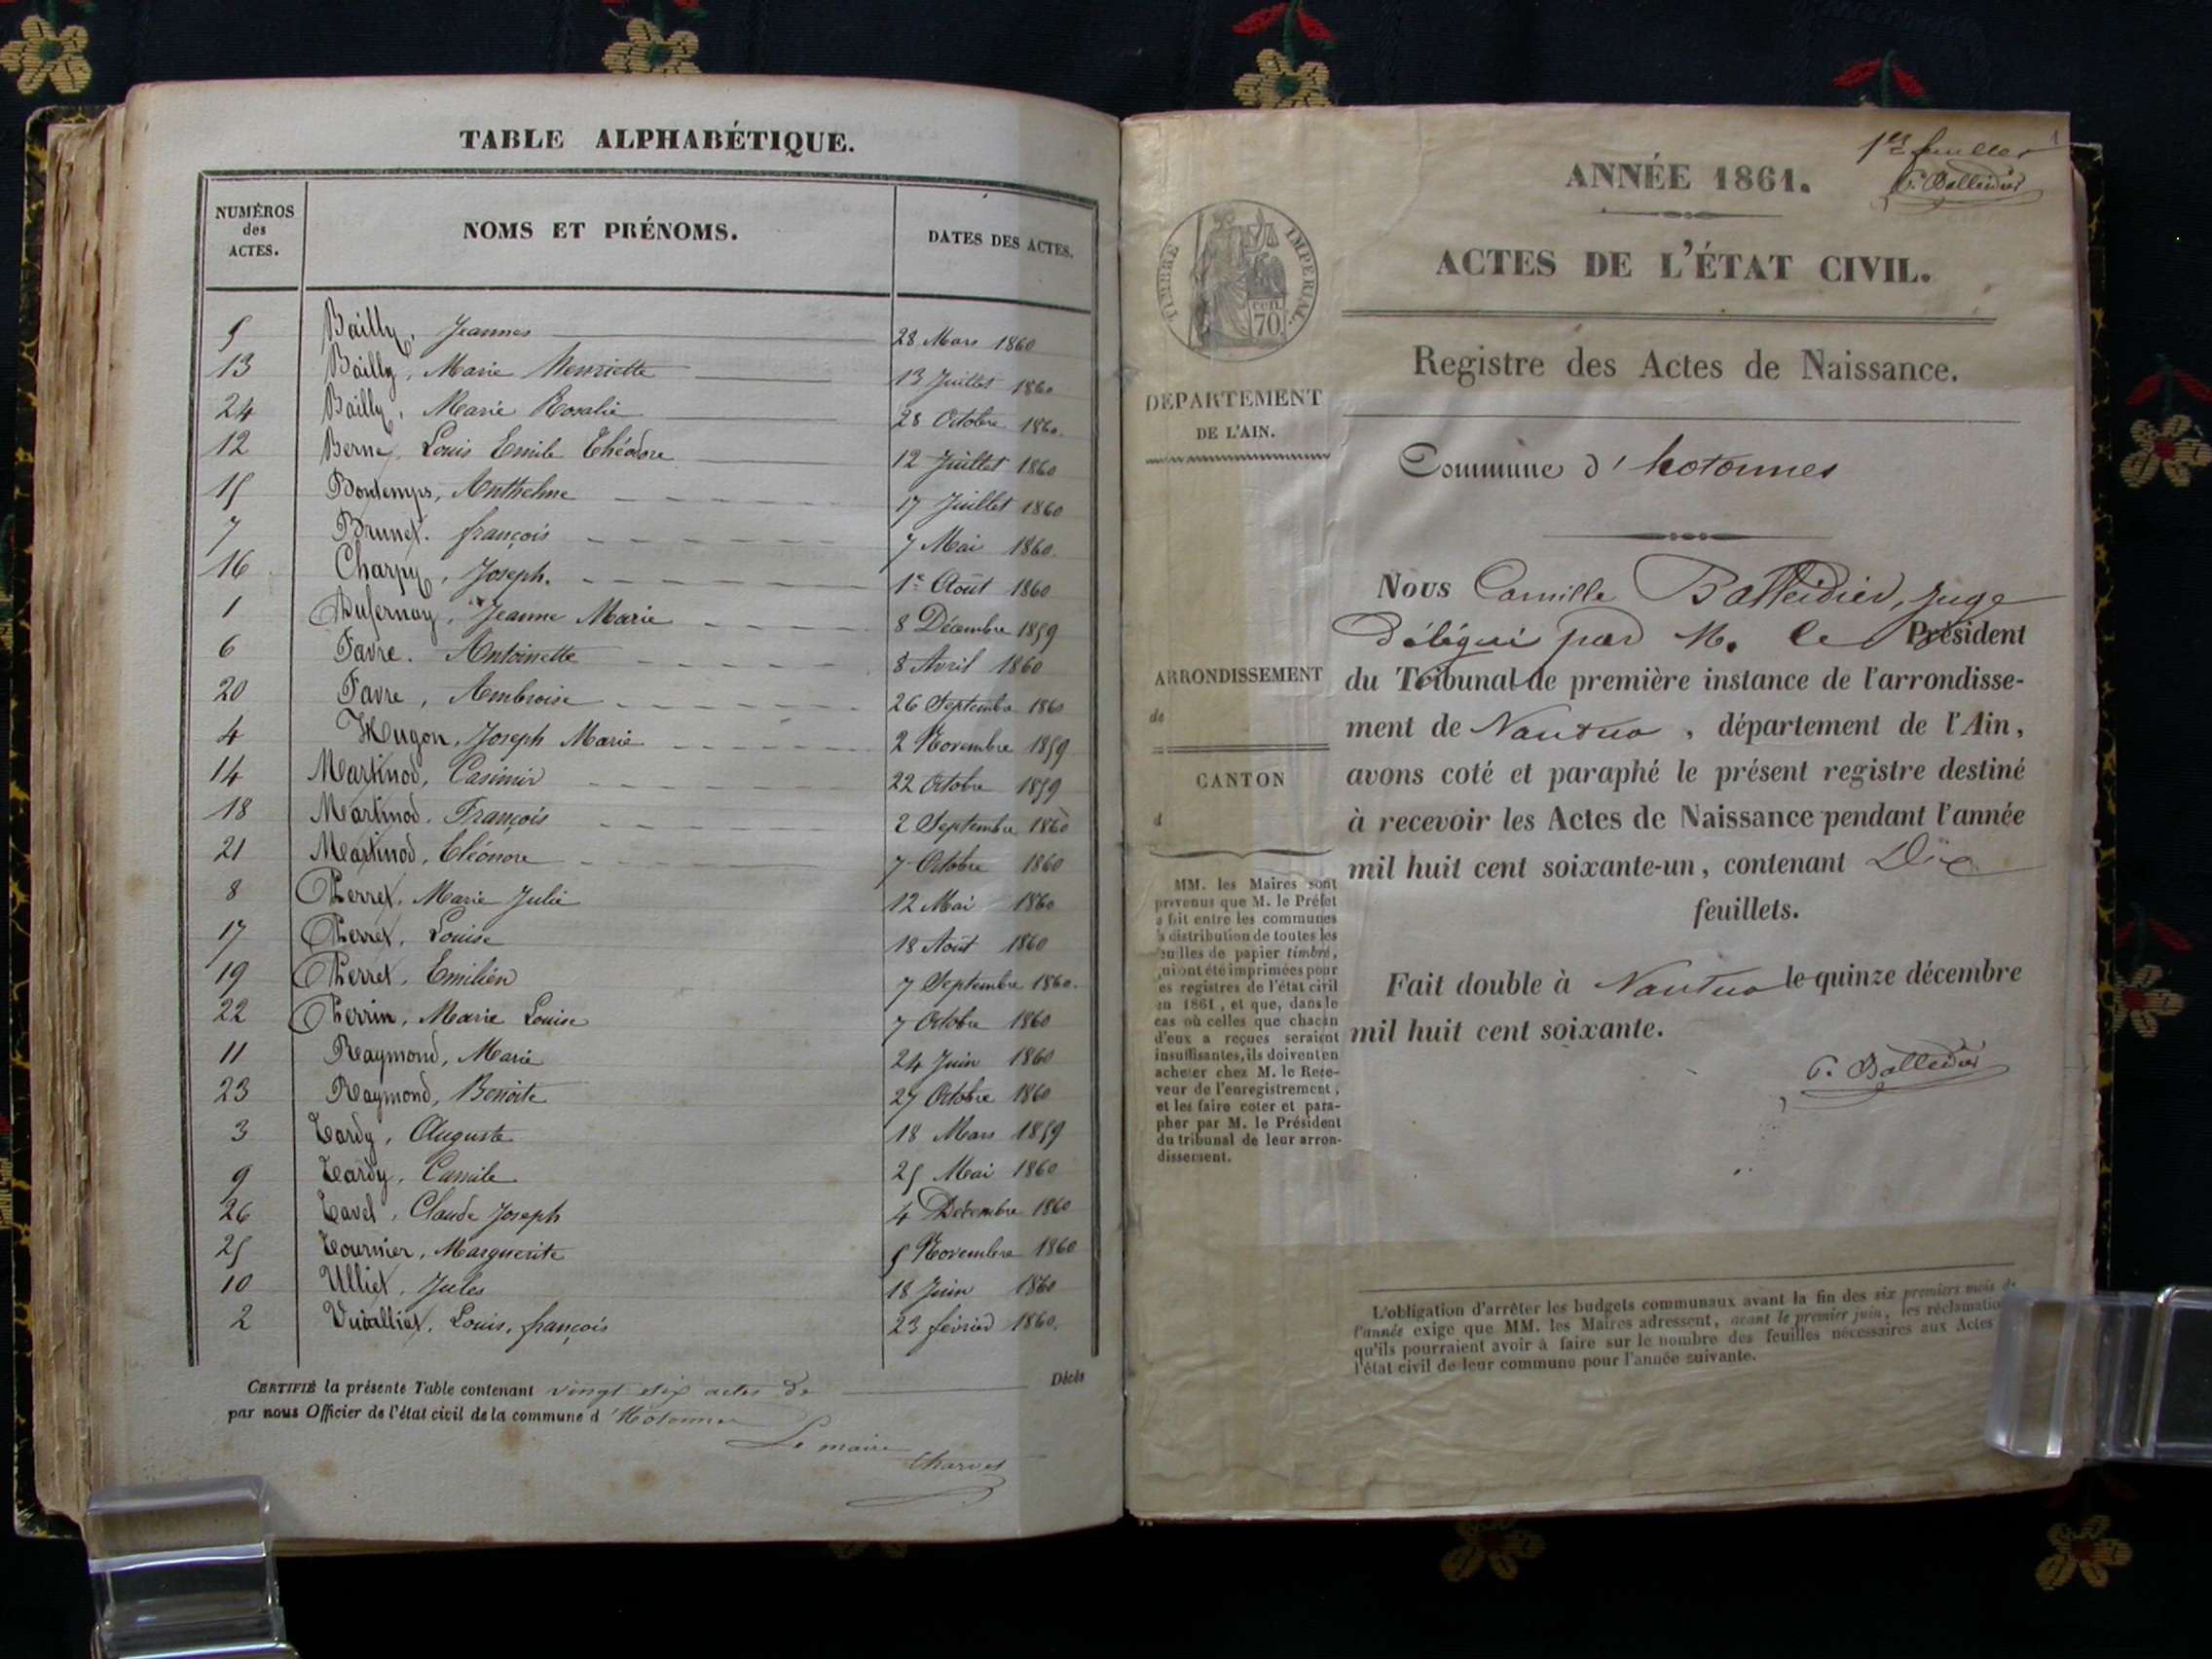 TABLE ALPHABÉTIQUE.
NUMÉROS des ACTES. NOMS ET PRÉNOMS. DATES DES ACTES.
5 Bailly, Jeannes 28 Mars 1860
13 Bailly, Marie Henriette 13 Juillet 1860
24 Bailly, Marie Rosalie 28 Octobre 1860.
12 Berne, Louis Emile Théodore 12 Juillet 1860
15 Bontemps, Anthelme 17 Juillet 1860
7 Brunet. françois 7 Mai 1860.
16 Charpy, Joseph. 1er Août 1860
1 Dufernay, Jeanne Marie 8 Décembre 1859
6 Favre. Antoinette 8 Avril 1860
20 Favre, Ambroise 26 Septembre 1860
4 Hugon, Joseph Marie 2 Novembre 1859
14 Martinod, Casimir 22 Octobre 1859
18 Martinod. François 2 Septembre 1860
21 Martinod, Eléonore 7 Octobre 1860
8 Perret, Marie Julie 12 Mai 1860
17 Perret, Louise 18 Août 1860
19 Perret, Emilien 7 Septembre 1860.
22 Perrin, Marie Louise 7 Octobre 1860
11 Raymond, Marie 24 Juin 1860
23 Raymond, Benoite 27 Octobre 1860
3 Tardy, Auguste 18 Mars 1859
9 Tardy, Camile 25 Mai 1860
26 Tavel, Claude Joseph 4 Décembre 1860
25 Tournier, Marguerite 5 Novembre 1860
10 Ulliet, Jules 18 Juin 1860
2 Vuailliat, Louis, françois 23 février 1860.
CERTIFIÉ la présente Table contenant vingt six actes de Décès
par nous Officier de l'état civil de la commune d'Hotonnes
Le maire
Charvet
1er feuillet 1
C. Balleidier
ANNÉE 1861.
ACTES DE L'ÉTAT CIVIL.
TIMBRE IMPERIAL.
cen.
70
Registre des Actes de Naissance.
DEPARTEMENT
DE L'AIN.
Commune d'hotonnes
Nous Camille Balleidier, juge
délégué par M. le Président
ARRONDISSEMENT
de
du Tribunal de première instance de l'arrondisse-
ment de Nantua, département de l'Ain,
CANTON
d
avons coté et paraphé le présent registre destiné
à recevoir les Actes de Naissance pendant l'année
mil huit cent soixante-un, contenant Dix
feuillets.
Fait double à Nantua le quinze décembre
mil huit cent soixante.
C. Balleidier
MM. les Maires sont
prévenus que M. le Préfet
a fait entre les communes
a distribution de toutes les
euilles de papier timbré,
ui ont été imprimées pour
es registres de l'état civil
en 1861, et que, dans le
cas où celles que chacun
d'eux a reçues seraient
insuffisantes, ils doivent en
acheter chez M. le Rece-
veur de l'enregistrement,
et les faire coter et para-
pher par M. le Président
du tribunal de leur arron-
dissement.
L'obligation d'arrêter les budgets communaux avant la fin des six premiers mois de
l'année exige que MM. les Maires adressent, avant le premier juin, les réclamatio
qu'ils pourraient avoir à faire sur le nombre des feuilles nécessaires aux Actes
l'état civil de leur commune pour l'année suivante.